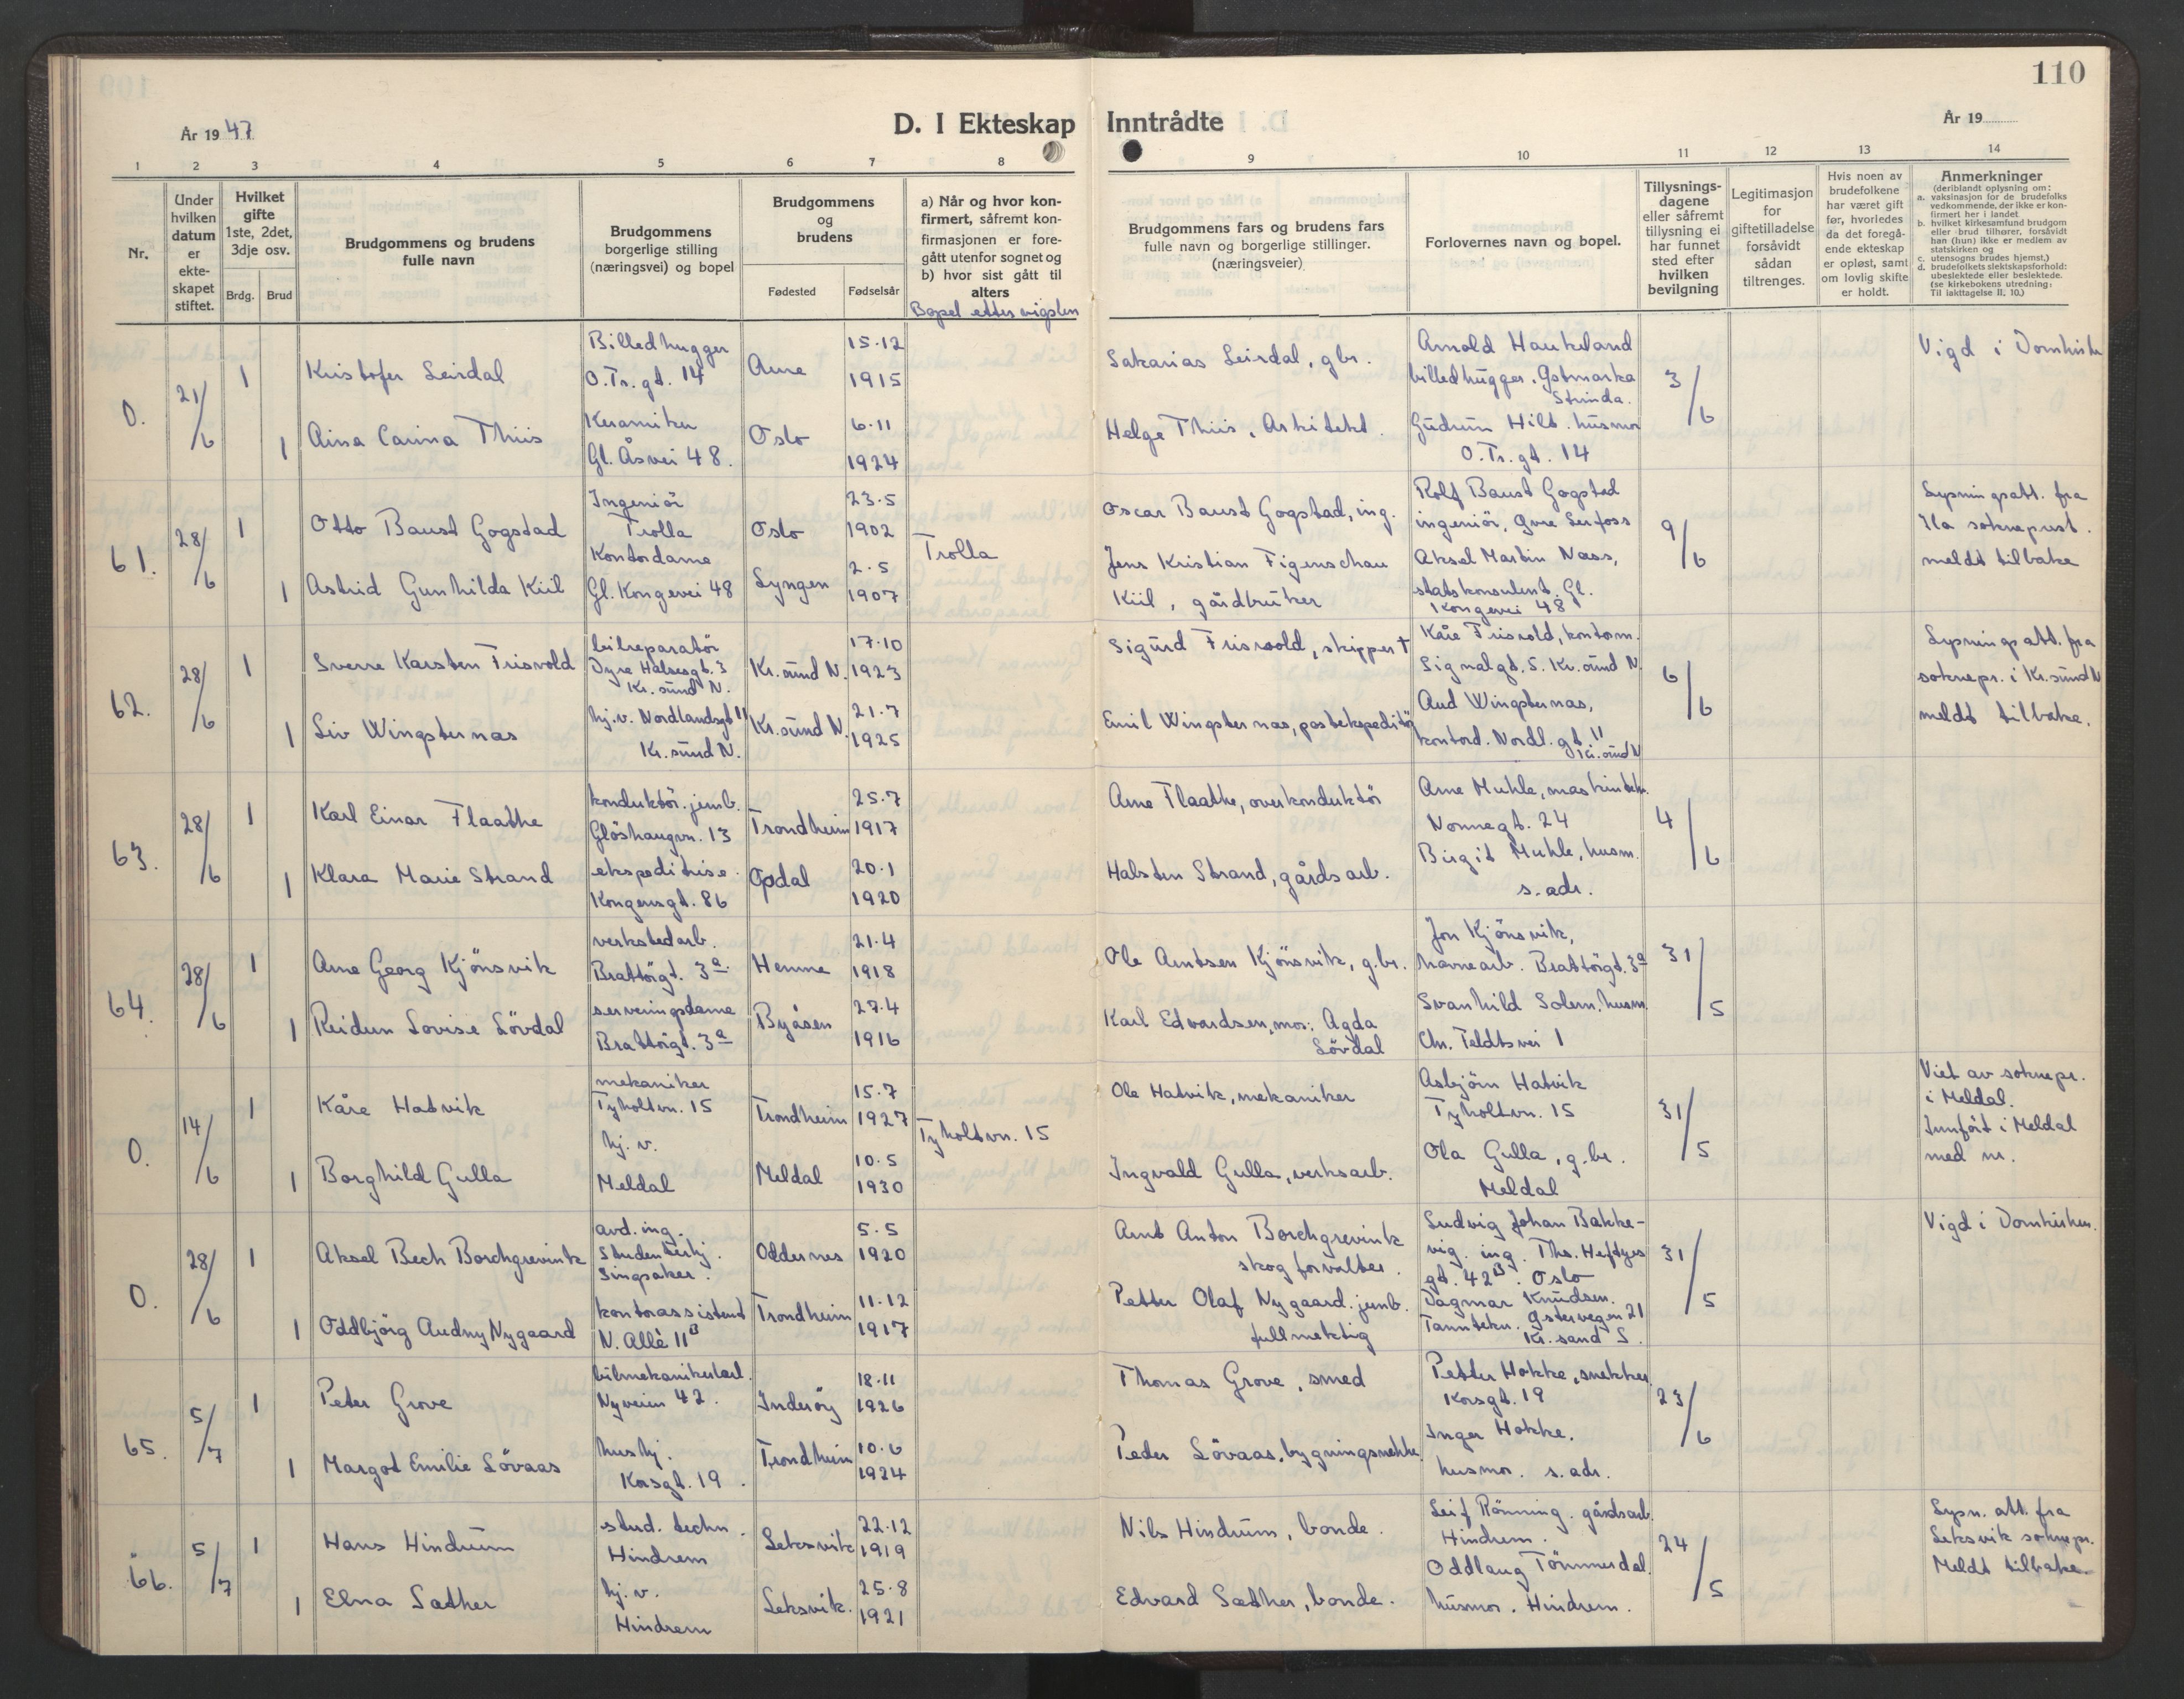 110
D. I Ekteskap Inntrådte
År 1947.
År 19
1 2 3 4 5 6 7 8 9 10 11 12 13 14
Nr.
Under hvilken datum er ekte-skapet stiftet.
Hvilket gifte 1ste, 2det, 3dje osv.
Brdg. Brud
Brudgommens og brudens fulle navn
Brudgommens borgerlige stilling (næringsvei) og bopel
Brudgommens og brudens
Fødested Fødselsår
a) Når og hvor kon-firmert, såfremt kon-firmasjonen er fore-gått utenfor sognet og
b) hvor sist gått til alters
Bopel etter vigslen
Brudgommens fars og brudens fars fulle navn og borgerlige stillinger. (næringsveier)
Forlovernes navn og bopel.
Tillysnings-dagene eller såfremt tillysning ei har funnet sted efter hvilken bevilgning
Legitimasjon for giftetilladelse forsåvidt sådan tiltrenges.
Hvis noen av brudefolkene har været gift før, hvorledes da det foregå-ende ekteskap er opløst, samt om lovlig skifte er holdt.
Anmerkninger
(deriblandt oplysning om:
a. vaksinasjon for de brudefolks vedkommende, der ikke er kon-firmert her i landet
b. hvilket kirkesamfund brudgom eller brud tilhører, forsåvidt han (hun) ikke er medlem av statskirken og
c. utensogns brudes hjemst,)
d. brudefolkets slektskapsforhold: ubeslektede eller beslektede.
(se kirkebokens utredning: Til iakttagelse II. 10.)
O. 21/6 1 Kristofer Leirdal
Billedhugger
O.Tr.gt. 14
Arne
15.12
1915
Sakarias Leirdal, gbr.
Arnold Haukeland
billedhugger. Gstmarka
Strinda.
3/6
Vigd i Domkirken
1 Aina Carina Thiis
Keramiker
Gl. Åsvei 48.
Oslo
6.11
1924
Helge Thiis, Arkitekt.
Gudrun Hilt. husmor
O.Tr.gt. 14
61. 28/6 1 Otto Baust Gogstad
Ingeniør
Trolla
Oslo
23.5
1902
Trolla
Oscar Baust Gogstad, ing.
Rolf Baust Gogstad
ingeniør, Øvre Leirfoss
9/6
Lysningsatt. fra
Ila sokneprest.
meldt tilbake
1 Astrid Gunhilda Kiil
Kontordame
Gl. Kongevei 48
Lyngen
2.5
1907
Jens Kristian Figenschau
Kiil, gårdbruker
Aksel Martin Næss,
statskonsulent. Gl.
Kongevei 48
62. 28/6 1 Sverre Karsten Frisvold
bilreparatør
Dyre Halsesgt. 3
Kr.sund N.
Kr.sund N.
17.10
1923
Sigurd Frisvold, skipper †
Kåre Frisvold, kontorm.
Signalgt. 5. Kr.sund N.
6/6
Lysningsatt. fra
soknepr. i Kr.sund N
meldt tilbake.
1 Liv Wingsternas
hj.v. Nordlandsgt 11
Kr.sund N.
Kr.sund N.
21.7
1925
Emil Wingsternas, postekspeditør
Aud Wingsternas,
kontord. Nordl.gt 11
Kr.sund N
63. 28/6 1 Karl Einar Flaathe
konduktør. jernb.
Gløshaugvn. 13
Trondheim
25.7
1917
Arne Flaathe, overkonduktør
Arne Muhle, maskintekn.
Nonnegt. 24
4/6
1 Klara Marie Strand
ekspeditrise.
Kongensgt. 86
Opdal
20.1
1920
Halsten Strand, gårdsarb.
Birgit Muhle, husm.
s. adr.
64. 28/6 1 Arne Georg Kjønsvik
verkstedarb.
Brattørgt. 3a.
Hemne
21.4
1918
Ole Arntsen Kjønsvik, g.br.
Jon Kjønsvik,
havnearb. Brattørgt. 3a
31/5
1 Reidun Lovise Løvdal
serveringsdame
Brattørgt. 3a
Byåsen
27.4
1916
Karl Edvardsen, mor: Agda
Løvdal
Svanhild Solem. husm.
Chr. Feldts vei 1
O. 14/6 1 Kåre Hatvik
mekaniker
Tyholtvn. 15
Trondheim
15.7
1927
Tyholtvn. 15
Ole Hatvik, mekaniker
Asbjørn Hatvik
Tyholtvn. 15
31/5
Viet av soknepr.
i Meldal.
Innført i Meldal
med nr.
1 Borghild Gulla
hj. v.
Meldal
Meldal
10.5
1930
Ingvald Gulla, verksarb.
Ola Gulla, g.br.
Meldal
O. 28/6 1 Aksel Bech Borchgrevink
avd. ing.
Studenterhj.
Singsaker.
Oddernes
5.5
1920
Arnt Anton Borchgrevink
skogforvalter.
Ludvig Johan Bakke-
vig. ing. Ths. Heftyes
gt. 42B. Oslo
31/5
Vigd i Domkirken.
1 Oddbjørg Audny Nygaard
kontorassistent
N. Allé 11B
Trondheim
11.12
1917
Petter Olaf Nygaard. jernb.
fullmektig
Dagmar Knudsen.
Tanntekn. Østervegen 21
Kr.sand S.
65. 5/7 1 Peter Grove
bilmekanikerlærl.
Nyveien 42.
Inderøy
18.11
1926
Thomas Grove, smed
Petter Hokke, snekker
Korsgt. 19
23/6
1 Margot Emilie Løvaas
hushj.
Korsgt. 19.
Trondheim
10.6
1924
Peder Løvaas, bygningsnekker
Inger Hokke.
husmor. s. adr.
66. 5/7 1 Hans Hindrum
stud. techn.
Hindrem
Leksvik
22.12
1919
Nils Hindrum, bonde.
Leif Rønning. gårdsarb.
Hindrem.
24/5
Lysn. att. fra
Leksvik soknepr.
Meldt tilbake.
1 Elna Sæther
hj. v.
Hindrem
Leksvik.
25.8
1921
Edvard Sæther, bonde.
Oddlaug Tømmerdal.
husmor. Hindrem.